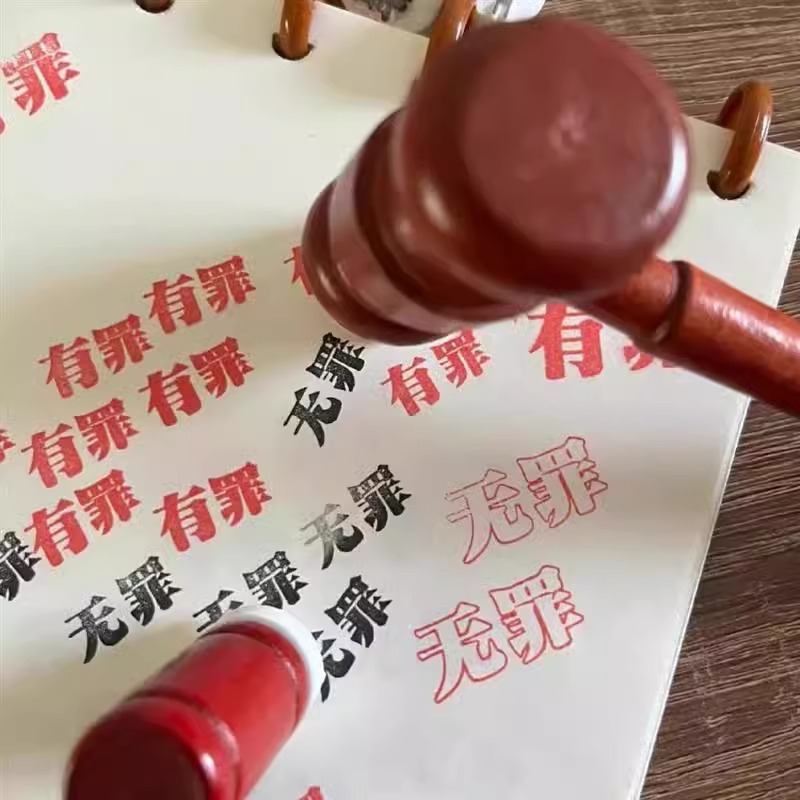 罪
有罪
有罪
有罪
有罪
无罪
有罪
有
有罪
有罪
有罪
无罪
无罪
罪
无罪
无罪
罪
无罪